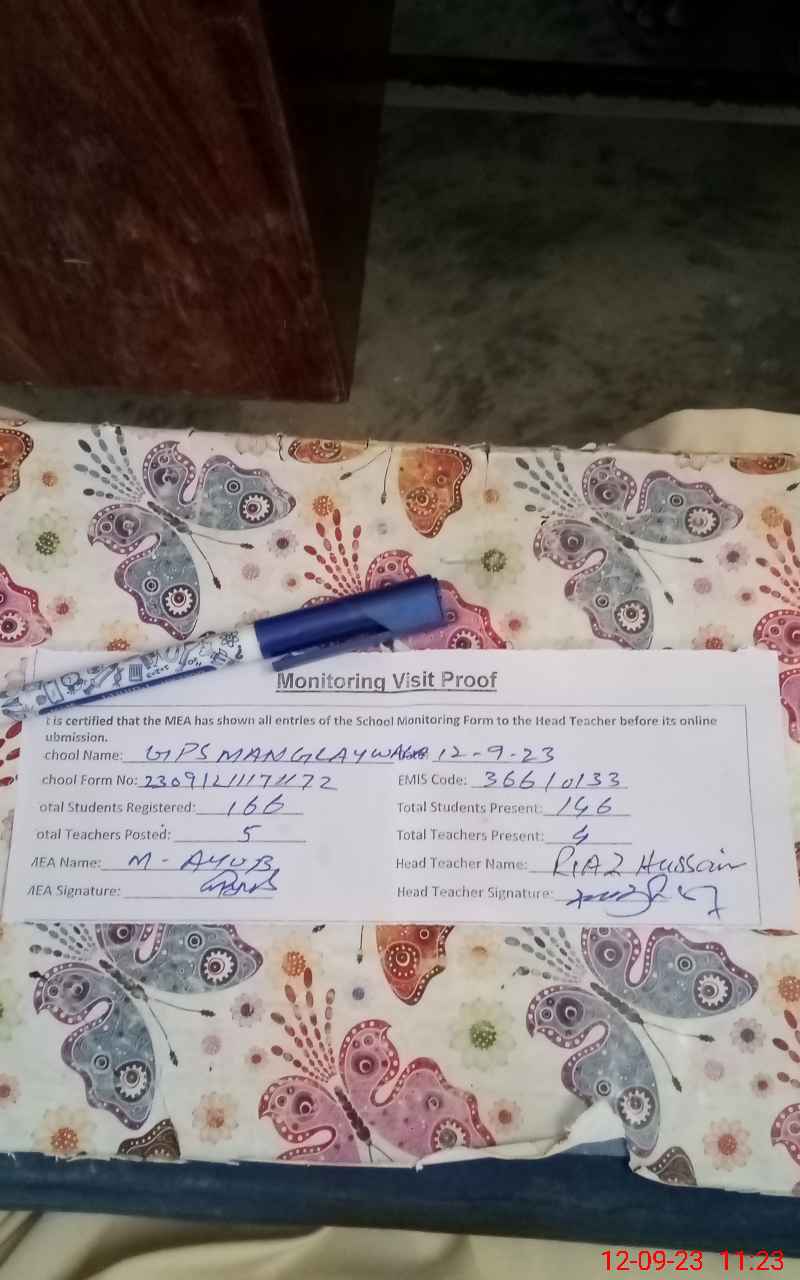 Monitoring Visit Proof
t is certified that the MEA has shown all entries of the School Monitoring Form to the Head Teacher before its online
ubmission.
chool Name: GPS MANGLAYWALA 12-9-23
chool Form No: EMIS Code: 36610133
otal Students Registered: 166 Total Students Present: 146
otal Teachers Posted: 5 Total Teachers Present: 4
MEA Name: M-AYUB Head Teacher Name: RIAZ Hussain
MEA Signature: Head Teacher Signature:
12-09-23 11:23